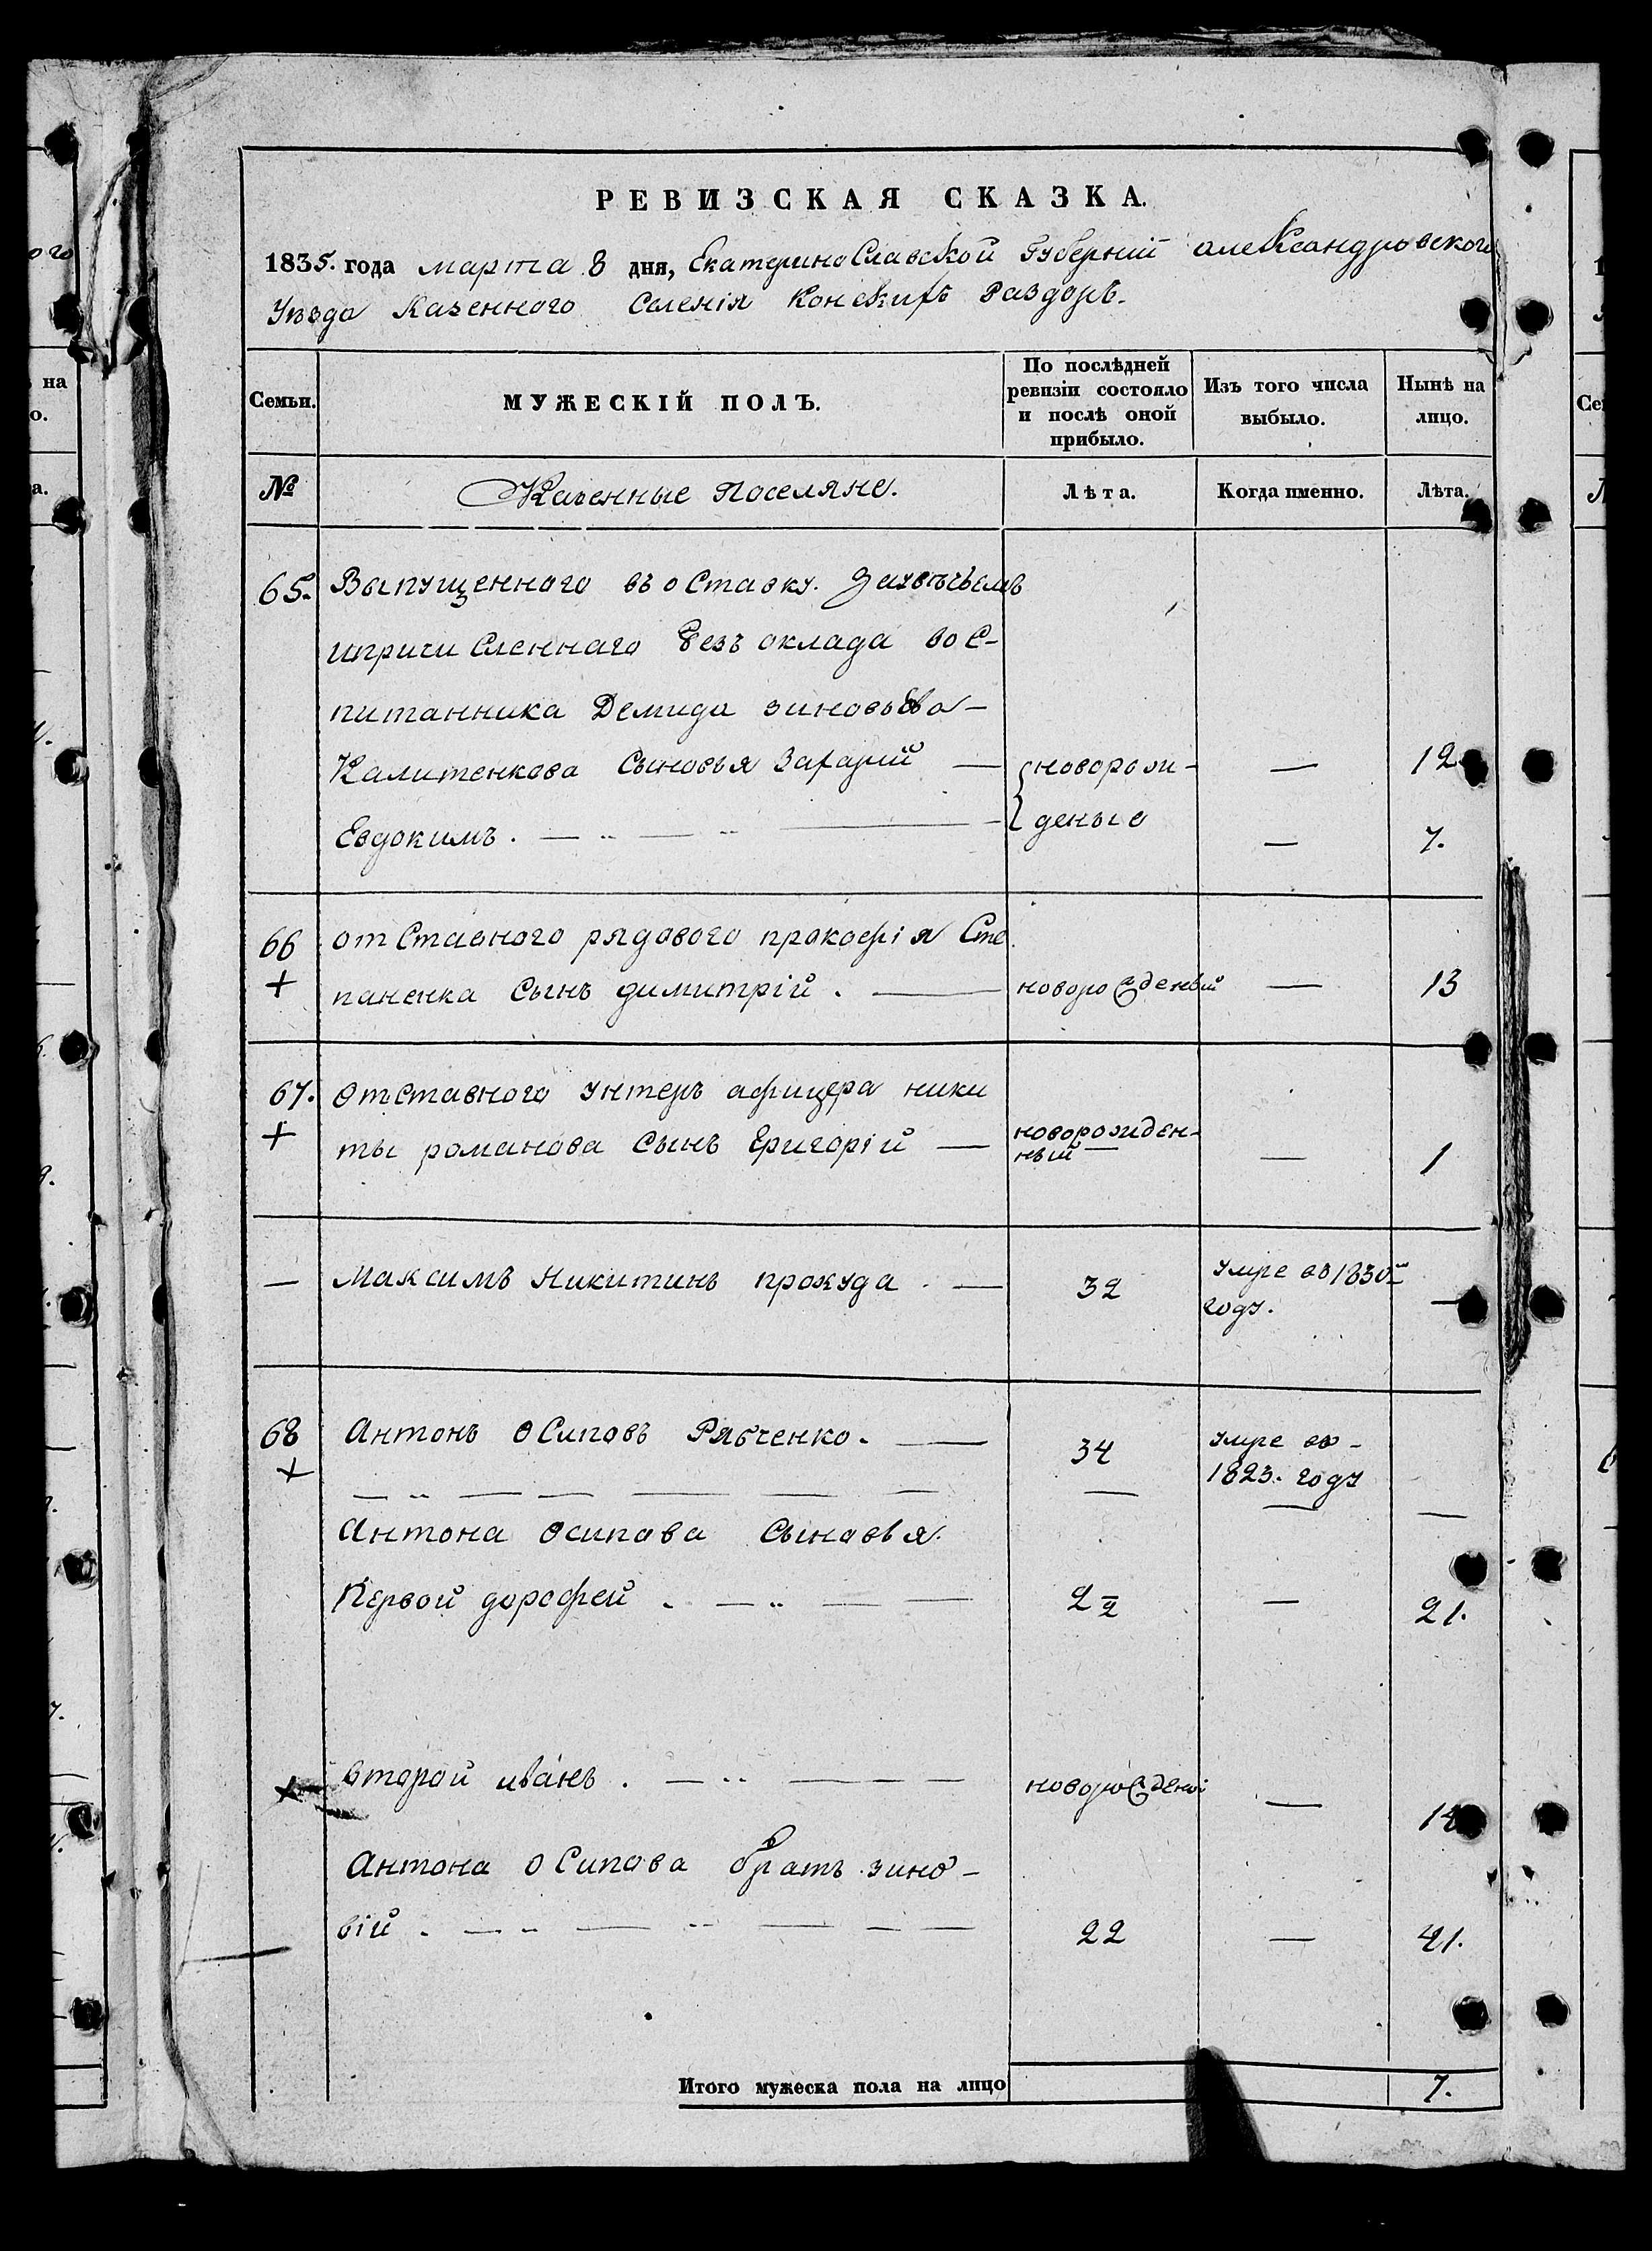 РЕВИЗСКАЯ СКАЗКА.
1835. года марта 8 дня, Екатеринославской Губерніи александровского
Уезда Казенного Селенія Конскихъ Раздоръ.
Семьи. МУЖЕСКІЙ ПОЛЪ. По послѣдней ревизіи состояло и послѣ оной прибыло. Изъ того числа выбыло. Нынѣ на лицо.
№ Казенные Поселяне. Лѣта. Когда именно. Лѣта.
65. Выпущенного въ оставку. Заувечьемъ
ипричисленнаго безъ оклада вос-
питанника Демида зиновьева-
Калитенкова Сыновья Захарий — новорож- — 12
Евдокимъ. — деные — 7.
66 отставного рядового прокофія Сте
+ паненка Сынъ димитрій. — новорожденый — 13
67. Отставного Унтеръ афицера ники
+ ты романова Сынъ Григорій — новорожден-
ный — — 1
— Максимъ Никитинъ прохуда. — 32 умре въ 1830м
году. —
68 Антонъ Осиповъ Рябченко. — 34 умре въ -
+ 1823. году
— — —
Антона Осипова Сыновья.
Первой дорофей. — 2 1/2 — 21.
+ второй иванъ. — новорожденой — 14
Антона Осипова братъ зино-
вій. — 22 — 41.
Итого мужеска пола на лицо 7.